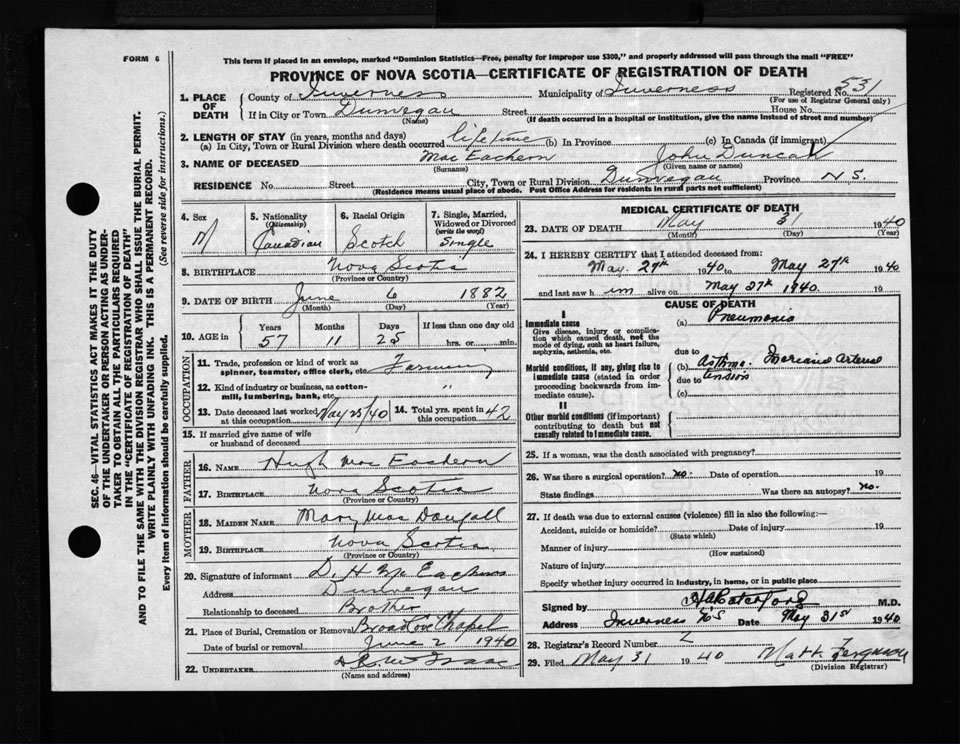 FORM 6
This form if placed in an envelope, marked "Dominion Statistics—Free, penalty for improper use $300," and properly addressed will pass through the mail "FREE"
PROVINCE OF NOVA SCOTIA—CERTIFICATE OF REGISTRATION OF DEATH
SEC. 46—VITAL STATISTICS ACT MAKES IT THE DUTY
OF THE UNDERTAKER OR PERSON ACTING AS UNDER-
TAKER TO OBTAIN ALL THE PARTICULARS REQUIRED
IN THE "CERTIFICATE OF REGISTRATION OF DEATH"
AND TO FILE THE SAME WITH THE DIVISION REGISTRAR WHO SHALL ISSUE THE BURIAL PERMIT.
WRITE PLAINLY WITH UNFADING INK. THIS IS A PERMANENT RECORD.
Every item of information should be carefully supplied. (See reverse side for instructions.)
1. PLACE OF DEATH County of Inverness Municipality of Inverness Registered No. 531
(For use of Registrar General only)
If in City or Town Dunvegan Street House No.
(Name) (If death occurred in a hospital or institution, give the name instead of street and number)
2. LENGTH OF STAY (in years, months and days)
(a) In City, Town or Rural Division where death occurred lifetime (b) In Province (c) In Canada (if immigrant)
3. NAME OF DECEASED MacEachern John Duncan
(Surname) (Given name or names)
RESIDENCE No. Street City, Town or Rural Division Dunvegan Province N.S.
(Residence means usual place of abode. Post Office Address for residents in rural parts not sufficient)
4. Sex M
5. Nationality (Citizenship) Canadian
6. Racial Origin Scotch
7. Single, Married, Widowed or Divorced (write the word) Single
8. BIRTHPLACE Nova Scotia
(Province or Country)
9. DATE OF BIRTH June 6 1882
(Month) (Day) (Year)
10. AGE in Years 57 Months 11 Days 25 If less than one day old hrs. or min.
OCCUPATION
11. Trade, profession or kind of work as spinner, teamster, office clerk, etc. Farming
12. Kind of industry or business, as cotton-mill, lumbering, bank, etc. "
13. Date deceased last worked at this occupation May 25/40 14. Total yrs. spent in this occupation 42
15. If married give name of wife or husband of deceased
FATHER
16. NAME Hugh MacEachern
17. BIRTHPLACE Nova Scotia
(Province or Country)
MOTHER
18. MAIDEN NAME Mary MacDougall
19. BIRTHPLACE Nova Scotia
(Province or Country)
20. Signature of informant D. H. McEachern
Address Dunvegan
Relationship to deceased Brother
21. Place of Burial, Cremation or Removal Broad Cove Chapel
Date of burial or removal June 2 1940
22. UNDERTAKER McIsaac
(Name and address)
MEDICAL CERTIFICATE OF DEATH
23. DATE OF DEATH May 31 1940
(Month) (Day) (Year)
24. I HEREBY CERTIFY that I attended deceased from:
May. 27th 1940 to May 27th 1940
and last saw him alive on May 27th 1940. 19
CAUSE OF DEATH
I
Immediate cause
Give disease, injury or complication which caused death, not the mode of dying, such as heart failure, asphyxia, asthenia, etc.
(a) Pneumonia
due to
Morbid conditions, if any, giving rise to immediate cause (stated in order proceeding backwards from immediate cause).
(b) Asthma. Increased Arterial
due to tension
(c)
II
Other morbid conditions (if important) contributing to death but not causally related to immediate cause.
25. If a woman, was the death associated with pregnancy?
26. Was there a surgical operation? no. Date of operation 19
State findings Was there an autopsy? no.
27. If death was due to external causes (violence) fill in also the following:—
Accident, suicide or homicide? Date of injury 19
(State which)
Manner of injury
(How sustained)
Nature of injury
Specify whether injury occurred in industry, in home, or in public place
Signed by M.D.
Address Inverness N.S Date May 31st 1940
28. Registrar's Record Number
29. Filed May 31 1940 Matt. Ferguson
(Division Registrar)